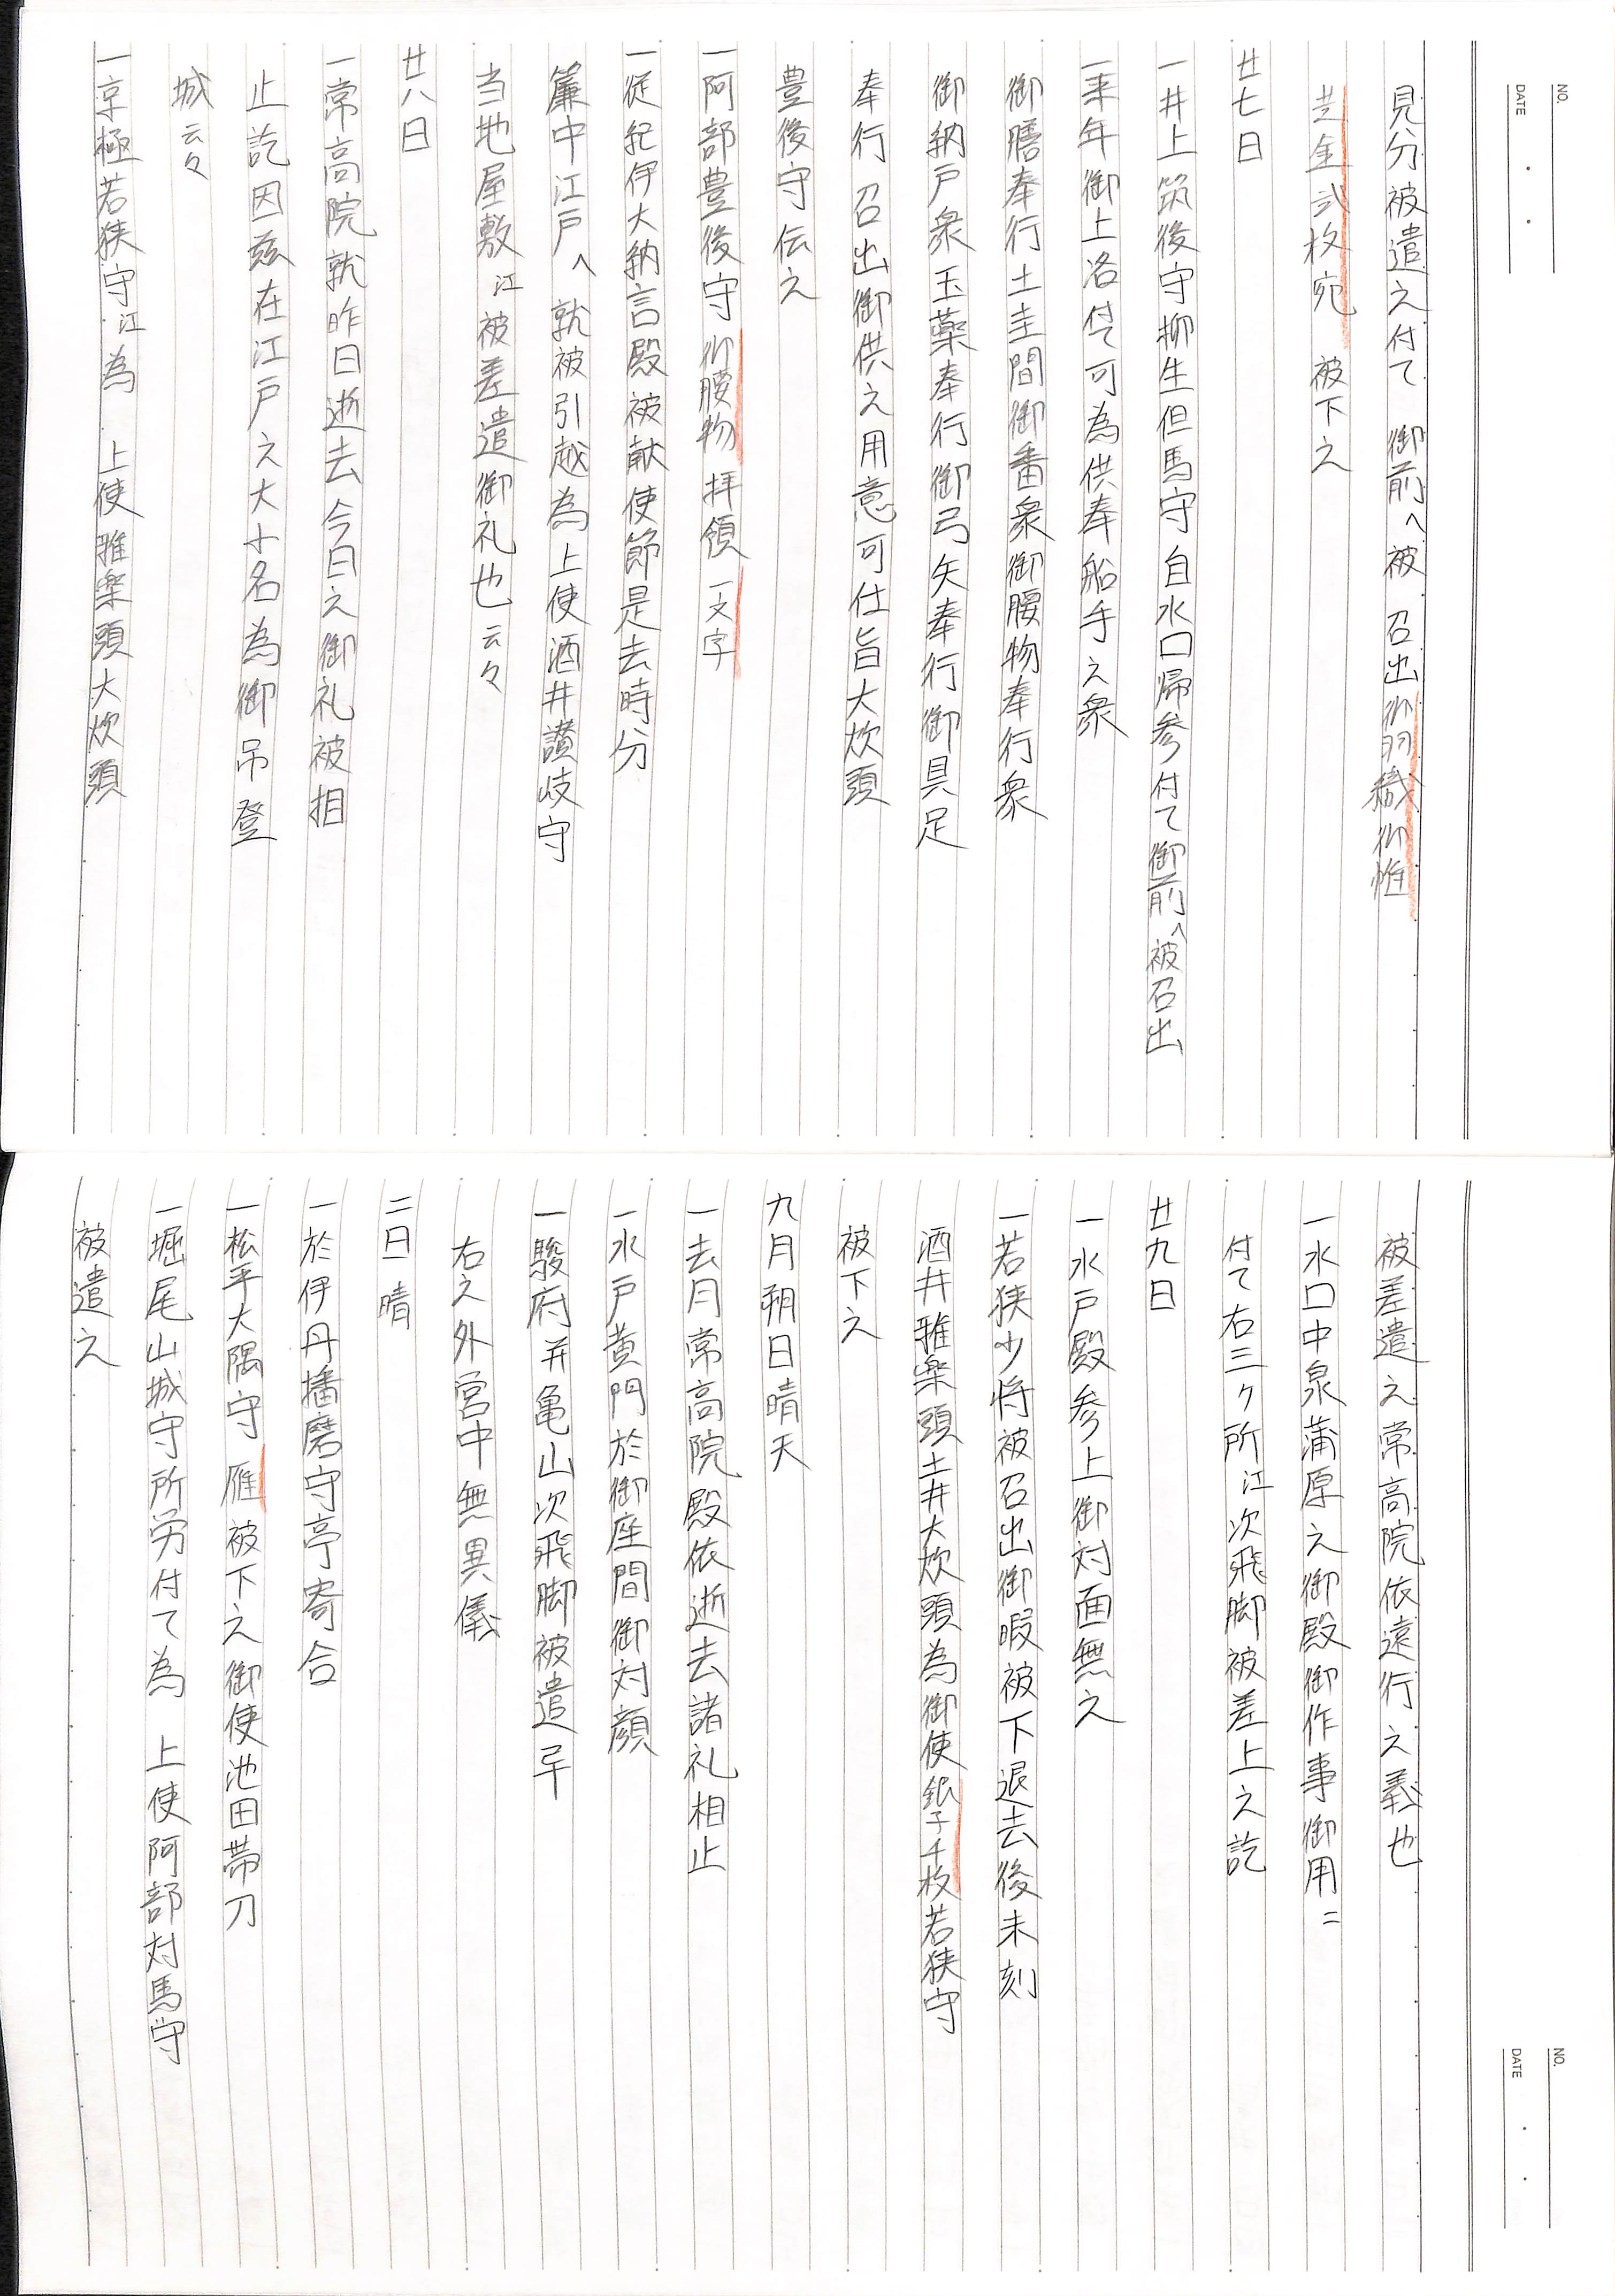 NO.
DATE
見分被遣之付て　御前へ被　召出御羽織御帷
並金弐枚宛　被下之
廿七日
一井上筑後守柳生但馬守自水口帰参付て御前へ被召出
一来年御上洛付て可為供奉船手之衆
御膳奉行土圭間御番衆御腰物奉行衆
御納戸衆玉薬奉行御弓矢奉行御具足
奉行　召出御供之用意可仕旨大炊頭
豊後守伝之
一阿部豊後守御腰物　拝領　一文字
一従紀伊大納言殿被献使節是去時分
簾中江戸へ就被引越為上使酒井讃岐守
当地屋敷江被差遣御礼也云々
廿八日
一常高院就昨日逝去今日之御礼被相
止訖因茲在江戸之大小名為御吊登
城云々
一京極若狭守江為　上使雅楽頭大炊頭
NO.
DATE
被差遣之常高院依遠行之義也
一水口中泉蒲原之御殿御作事御用ニ
付て右三ヶ所江次飛脚被差上之訖
廿九日
一水戸殿参上御対面無之
一若狭少将被召出御暇被下退去後未刻
酒井雅楽頭土井大炊頭為御使銀子千枚若狭守
被下之
九月朔日晴天
一去月常高院殿依逝去諸礼相止
一水戸黄門於御座間御対顔
一駿府并亀山次飛脚被遣早
右之外営中無異儀
二日　晴
一於伊丹播磨守亭寄合
一松平大隅守　雁　被下之御使池田帯刀
一堀尾山城守所労付て為　上使阿部対馬守
被遣之